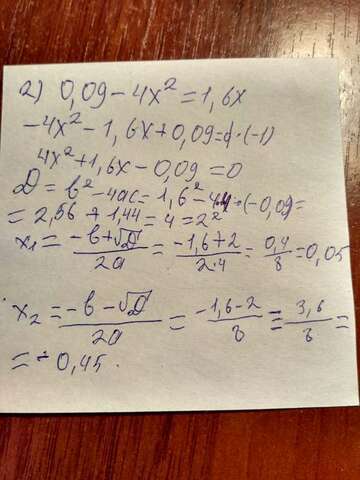 2) 0,09 - 4x² = 1,6x
-4x² - 1,6x + 0,09 = 0 | · (-1)
4x² + 1,6x - 0,09 = 0
D = b² - 4ac = 1,6² - 4·4·(-0,09 =
= 2,56 + 1,44 = 4 = 2²
x₁ = (-b + √D)/2a = (-1,6 + 2)/(2·4) = 0,4/8 = 0,05
x₂ = (-b - √D)/2a = (-1,6 - 2)/8 = 3,6/8 =
= -0,45.